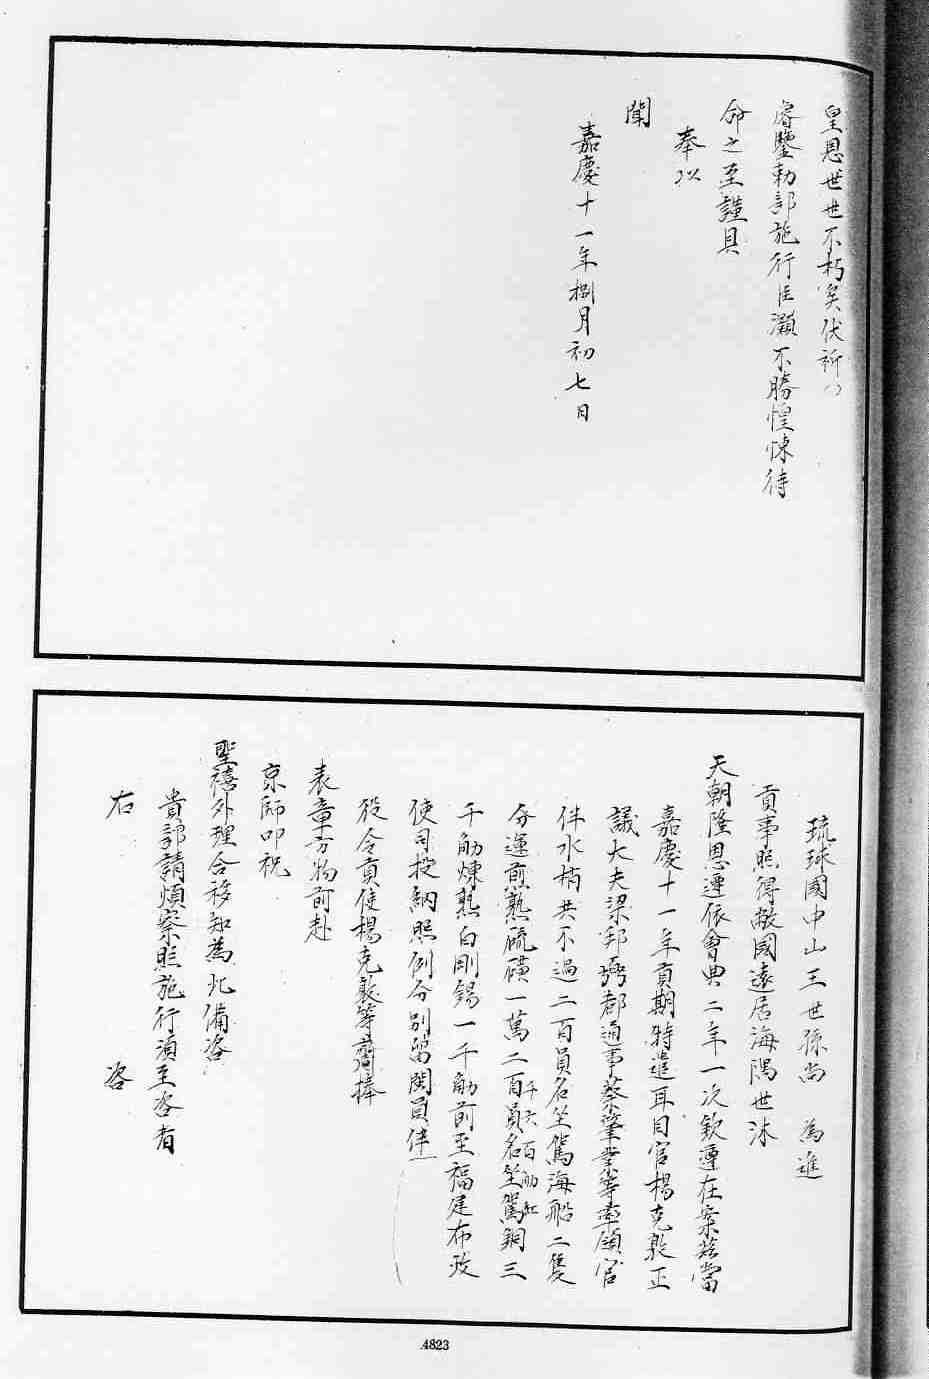 皇恩世世不朽矣伏祈
睿鑒勅部施行臣灝不勝惶悚待
命之至謹具
奉以
聞
嘉慶十一年捌月初七日
琉球國中山王世孫尚 為進
貢事照得敝國遠居海隅世沐
天朝隆恩遵依會典二年一次欽遵在案茲當
嘉慶十一年貢期特遣耳目官楊克敦正
議大夫梁邦弼都通事蔡肇業等率領官
伴水梢共不過二百員名坐駕海船二隻
分運煎熟硫磺一萬二百員名坐駕銅三
千六百觔紅
千觔煉熟白剛錫一千觔前至福建布政
使司投納照例分別留閩員伴
役令貢使楊克敦等齎捧
表章方物前赴
京師叩祝
聖禧外理合移知為此備咨
貴部請煩察照施行須至咨者
右 咨
4823